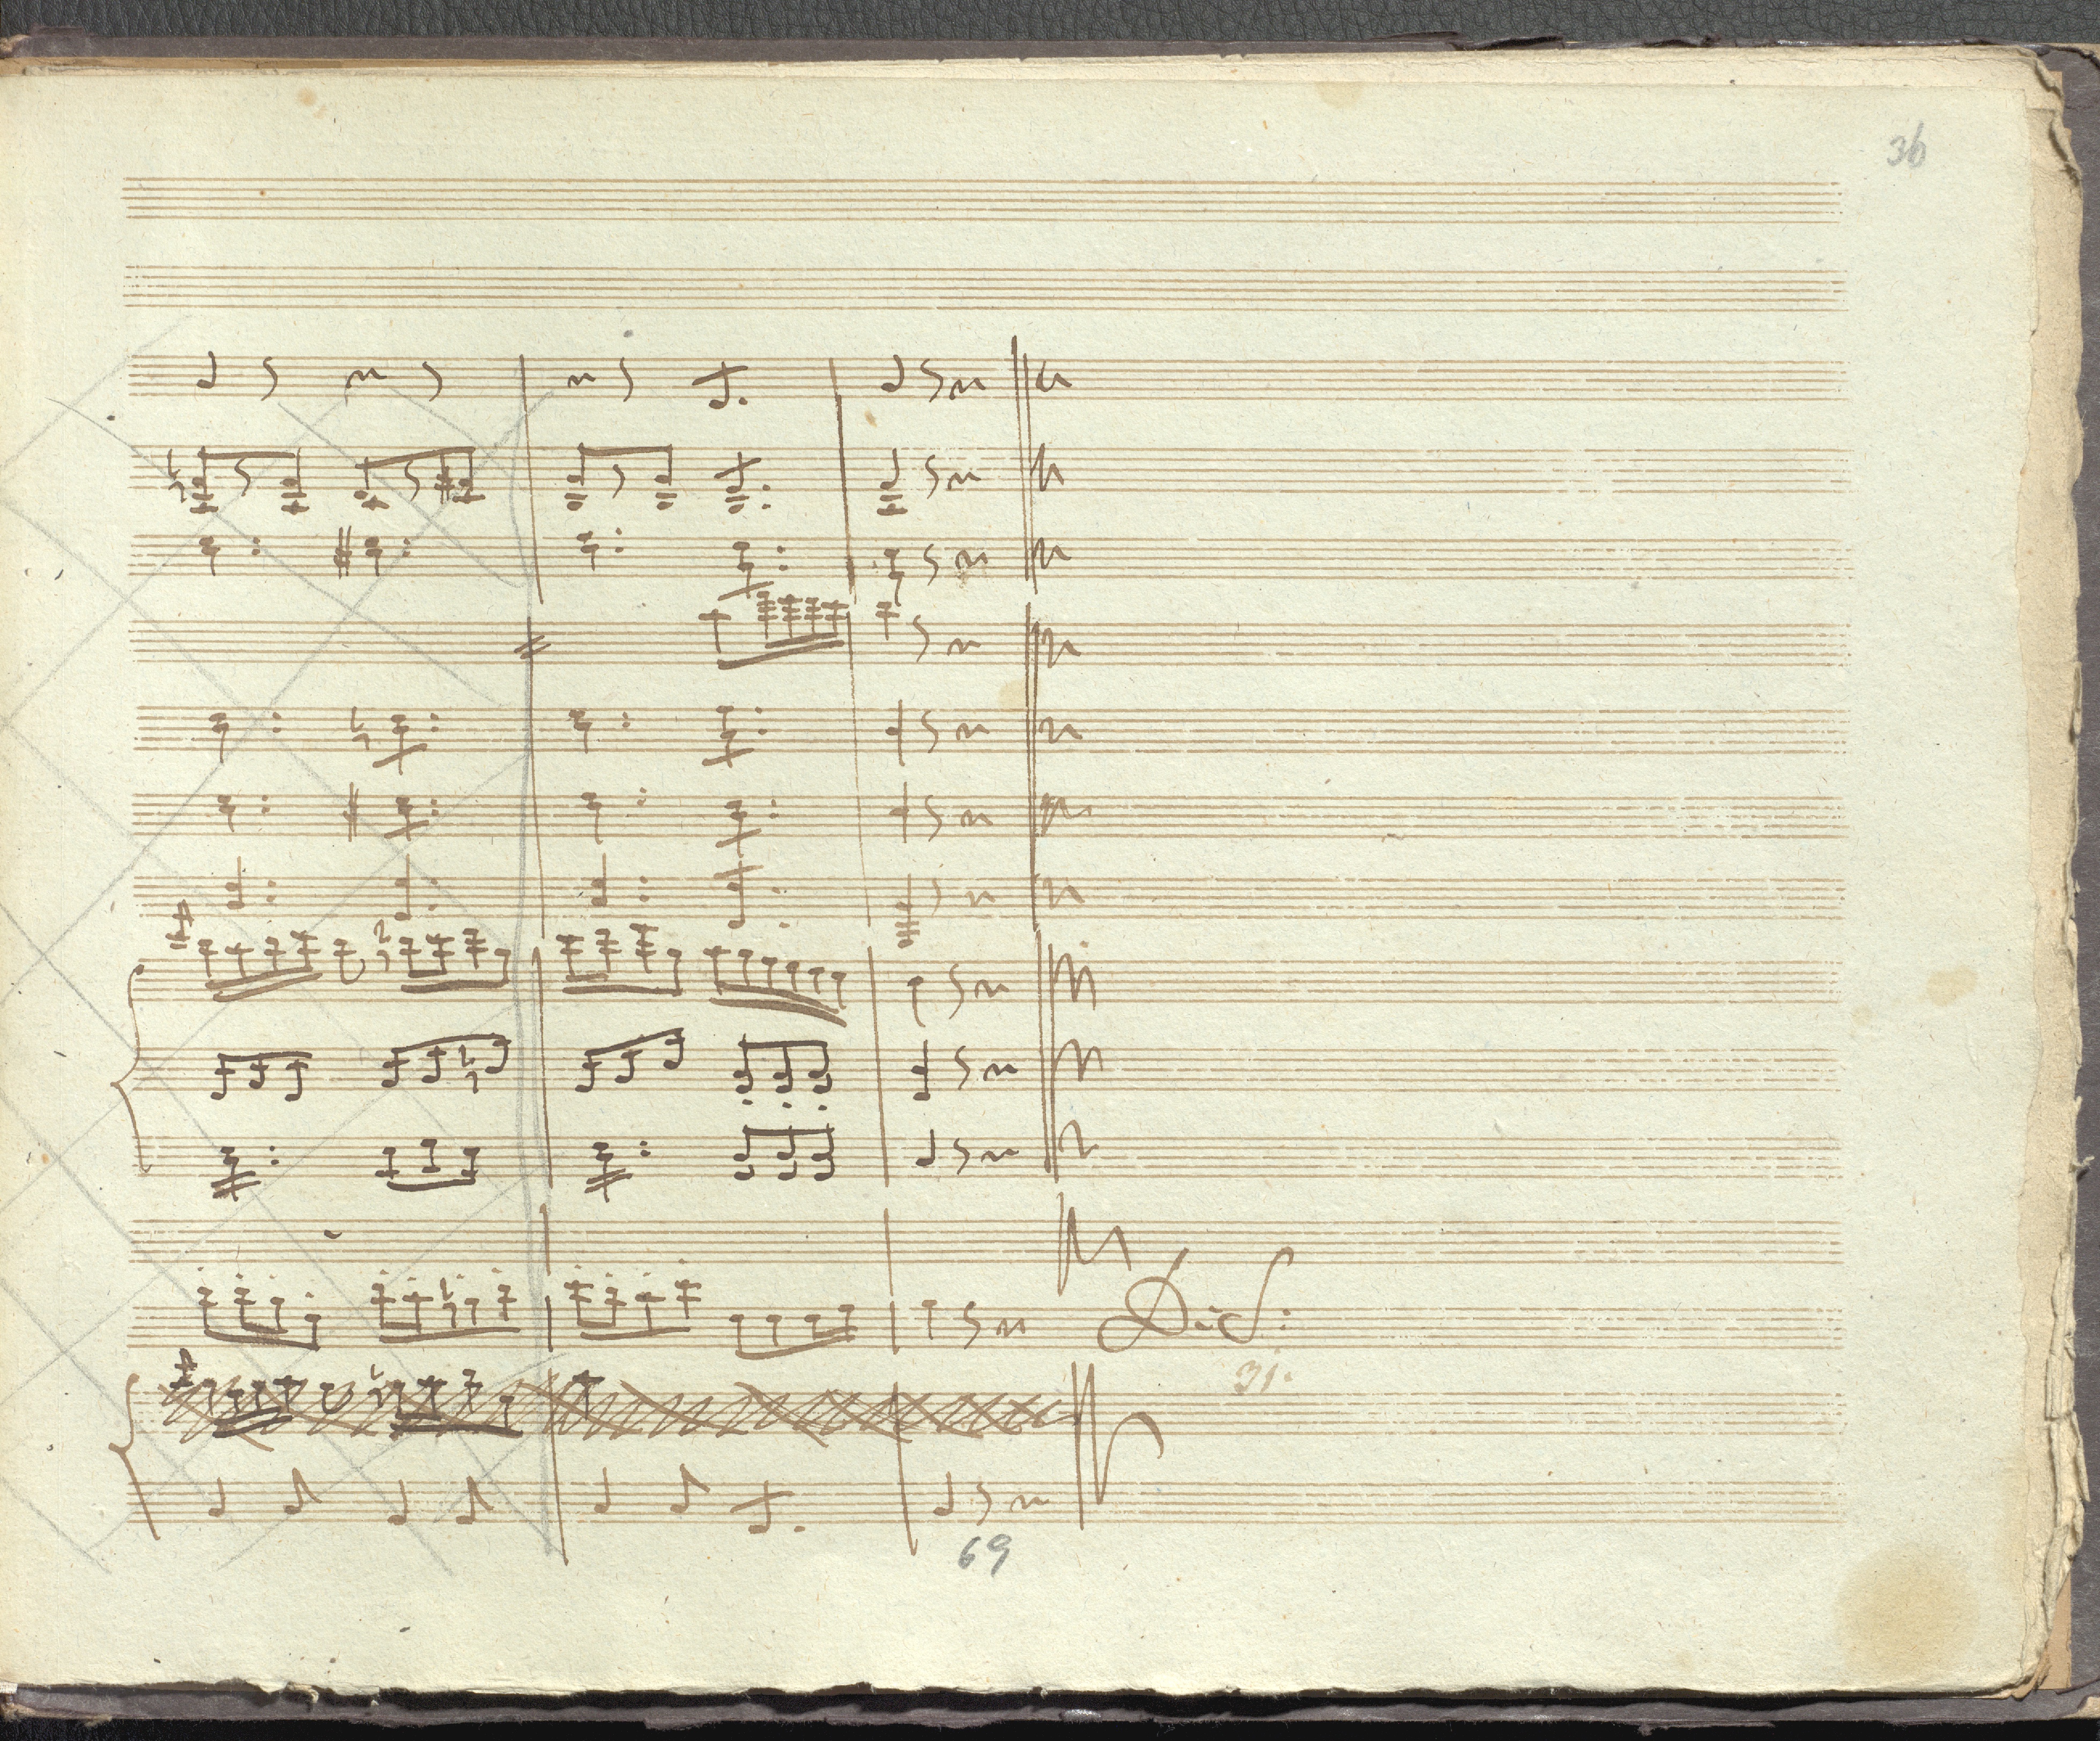 36
D. S:
31.
69